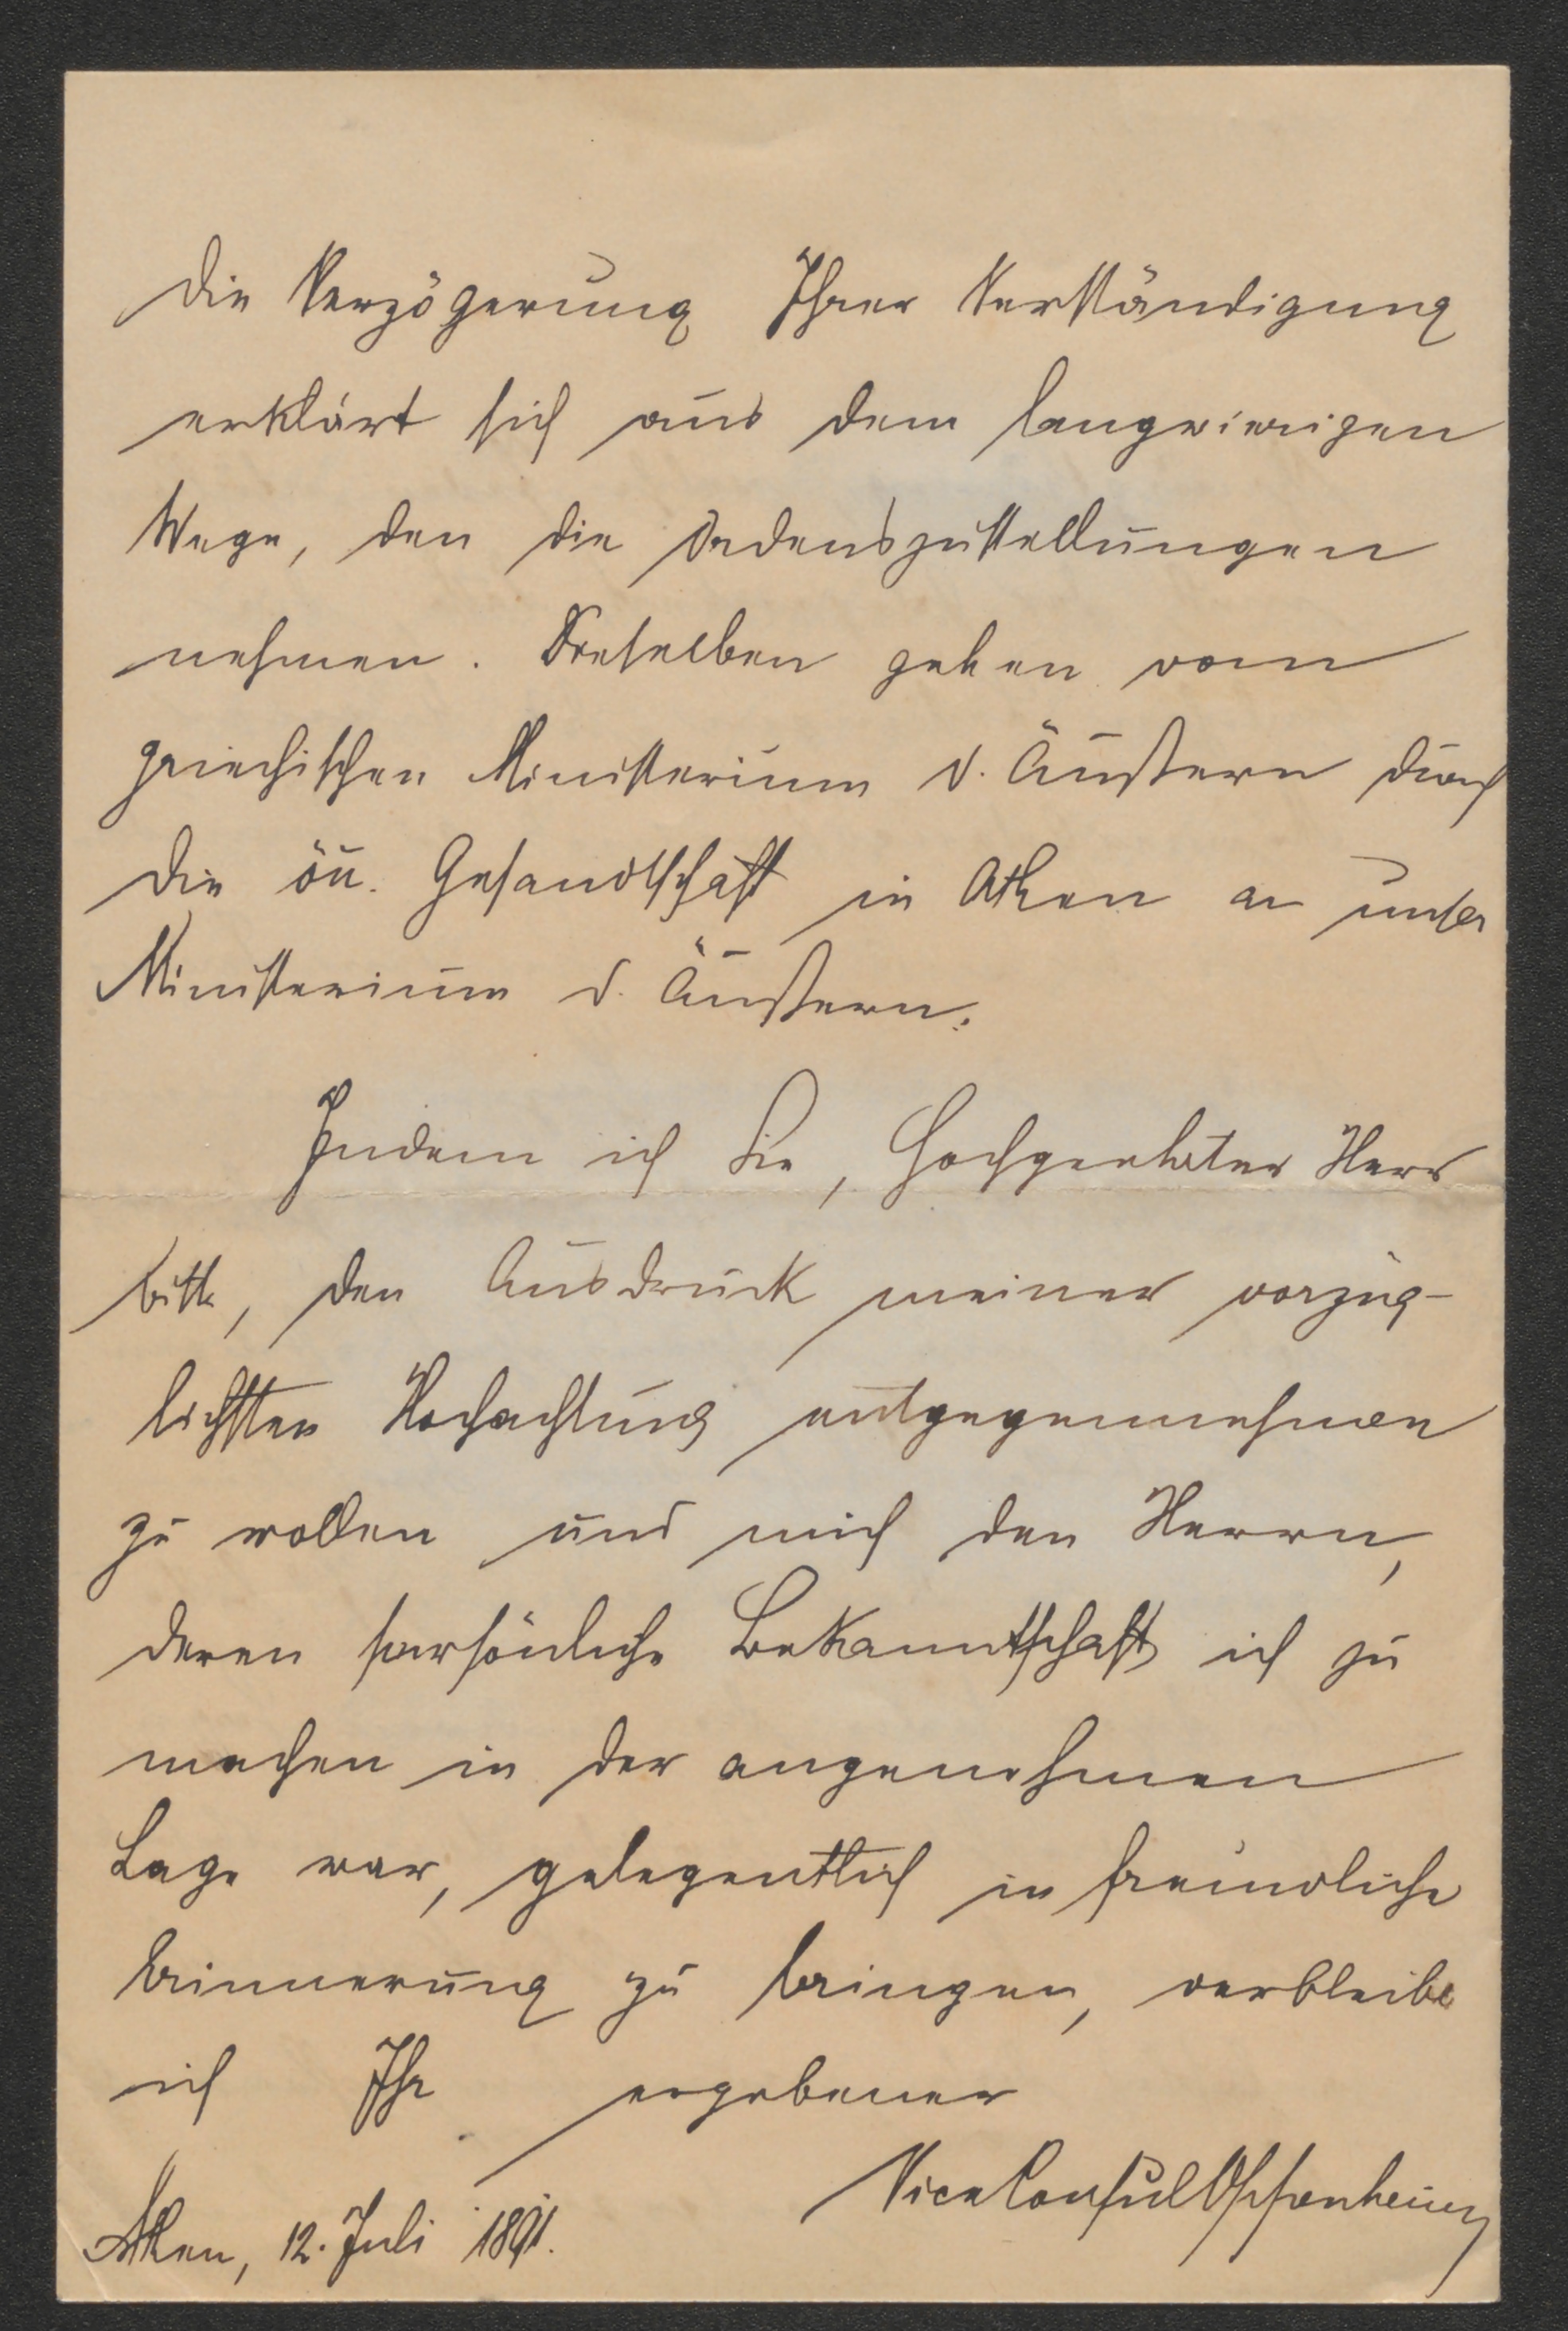 die Verzögerung Ihrer Verständigung
erklärt sich aus dem langwierigen
Wege, den die Ordenszustellungen
nehmen. Dieselben gehen vom
griechischen Ministerium d. Äußern durch
die öu. Gesandtschaft in Athen an unser
Ministerium d. Äußern.
Indem ich Sie, Hochgeehrter Herr
bitte, den Ausdruck meiner vorzüg-
lichsten Hochachtung entgegennehmen
zu wollen und mich den Herrn,
deren persönliche Bekanntschaft ich zu
machen in der angenehmen
Lage war, gelegentlich in freundliche
Erinnerung zu bringen, verbleibe
ich Ihr ergebener
ViceConsul Oppenheimer
Athen, 12. Juli 1891.